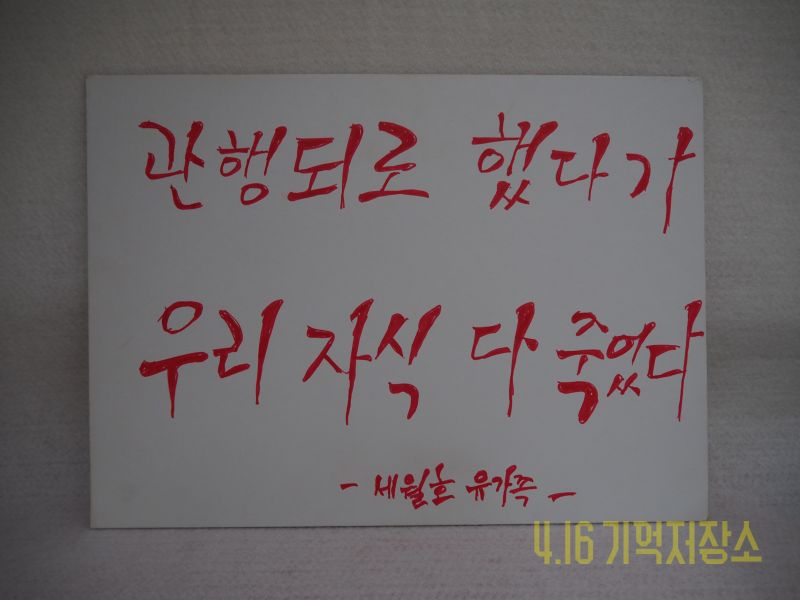 관행되로 했다가
우리 자식 다 죽었다
- 세월호 유가족 -
4.16 기억저장소